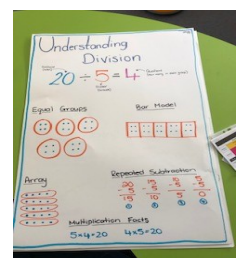 Understanding
Division
20 ÷ 5 = 4
Equal Groups
Bar Model
Array
Repeated Subtraction
20 15 10 5
- 5 - 5 - 5 - 5
15 10 5 0
Multiplication Facts
5×4=20 4×5=20